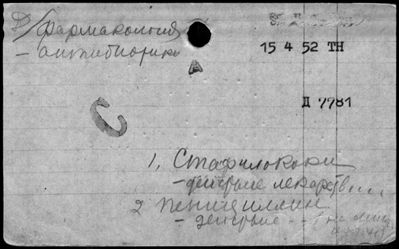 Д/фармакология
- антибиотики
15 4 52 ТН
A
Д 7781
С
1, Стафилококки
- действие лекарствен
2 Пенициллин
- действие - -